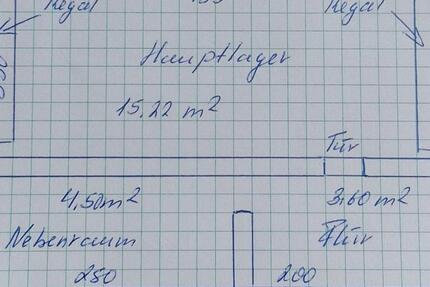 Regal
Regal
Hauptlager
15,22 m²
Tür
4,50m²
3,60 m²
Nebenraum
Flur
250
200